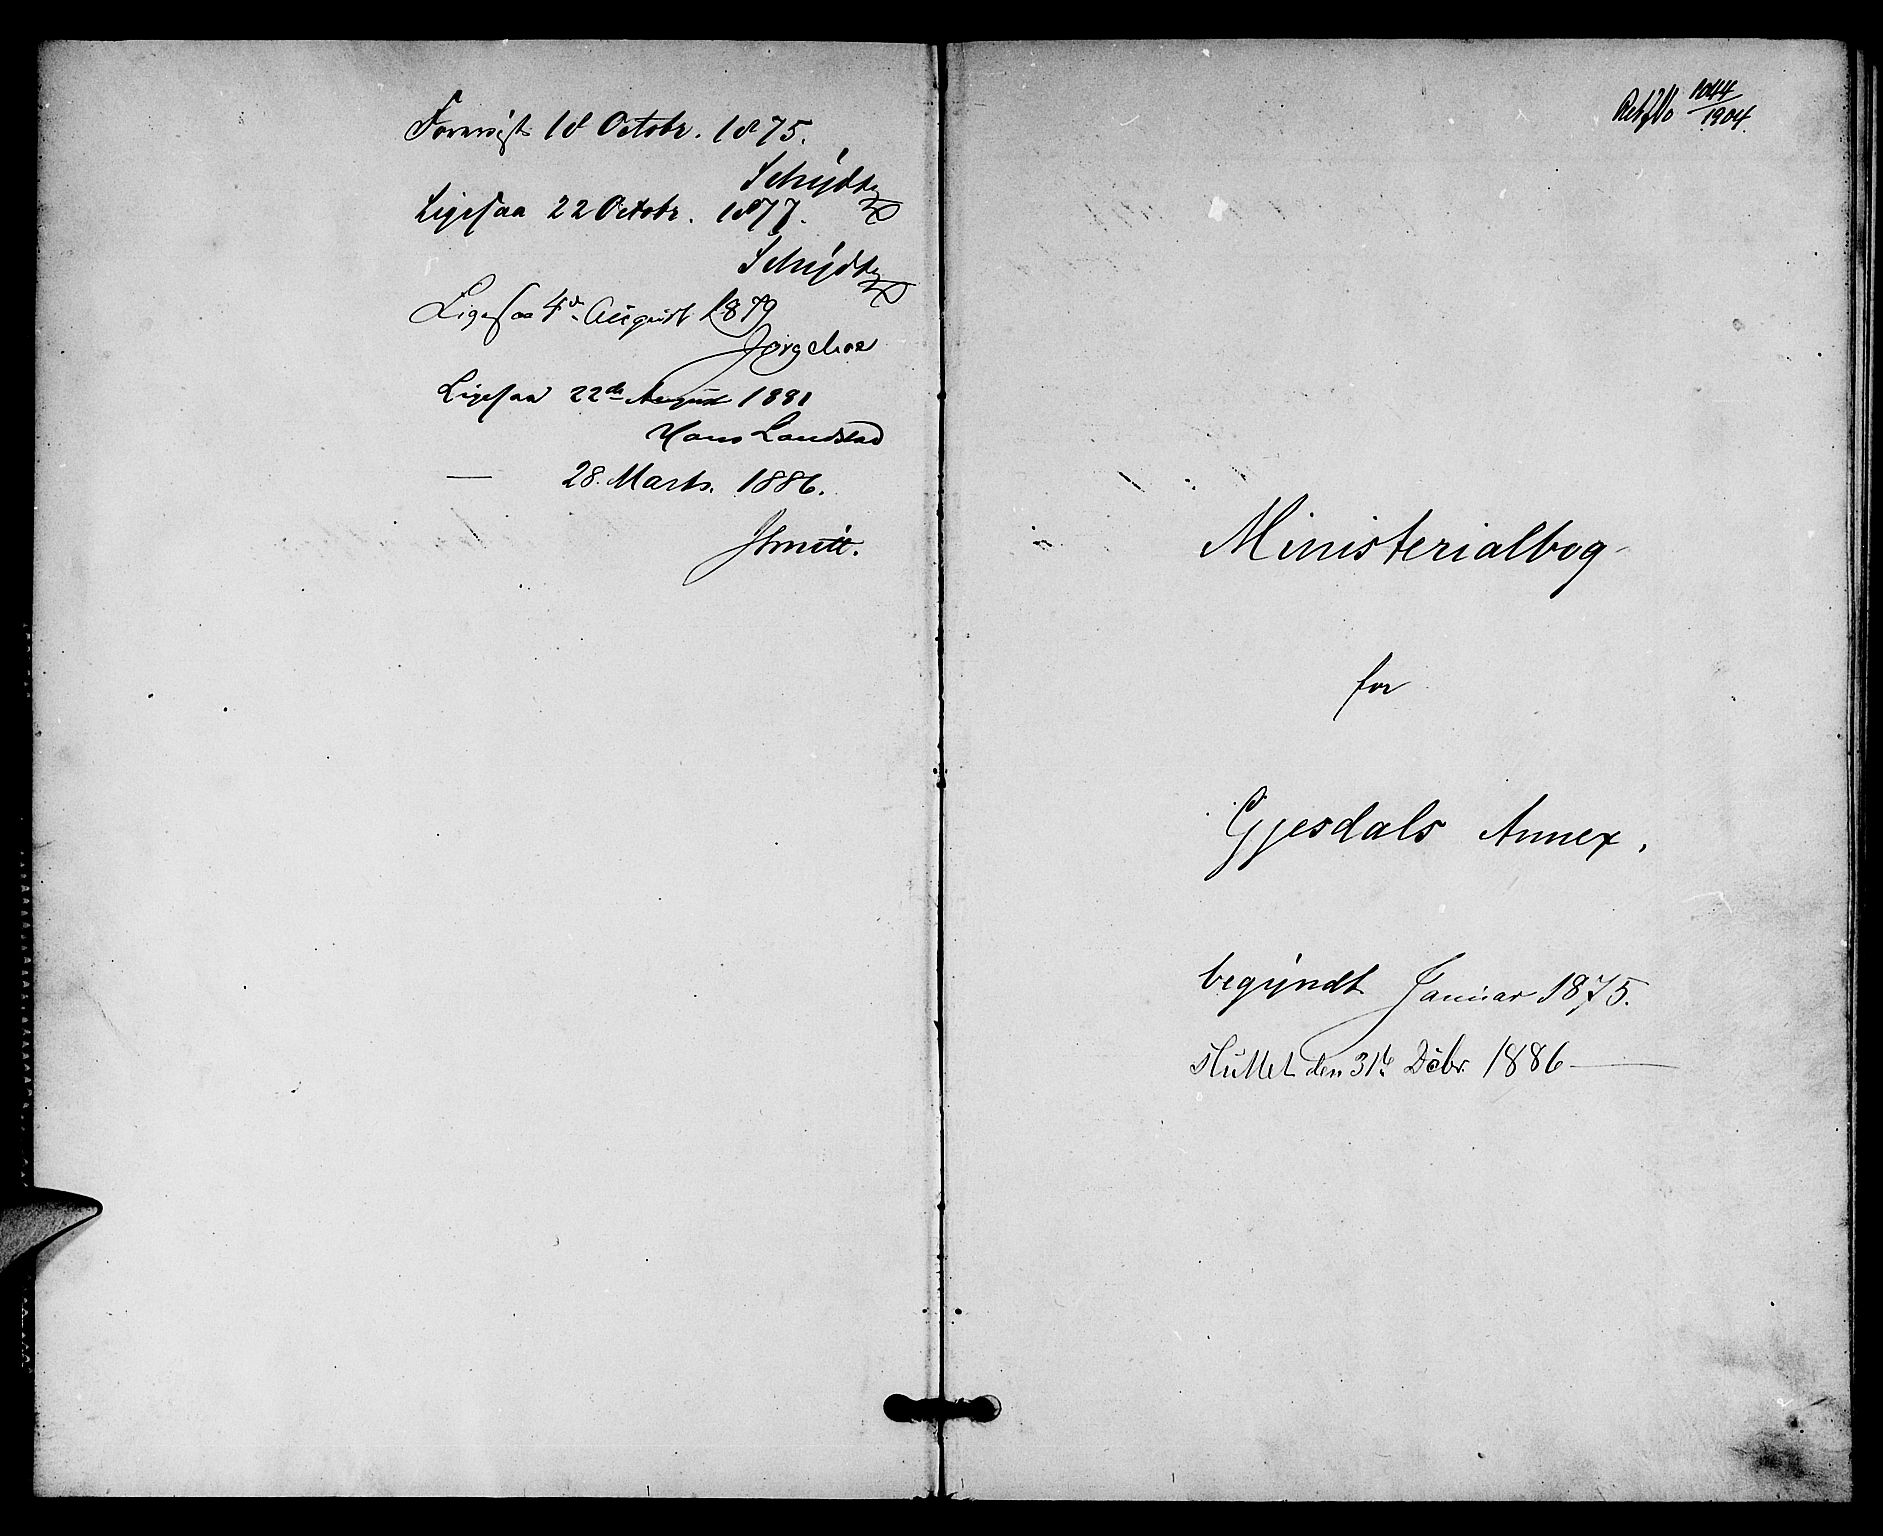 Forevist 18 Octobr. 1875.
Schjødt
Ligesaa 22 Octobr. 1877.
Schjødt
Ligesaa 4de August 1879
Ligesaa 22de August 1881
Hans Landstad
— 28. Marts. 1886.
1044/1904.
Ministerialbog
for
Gjesdals Annex.
begyndt Januar 1875.
sluttet den 31te Decbr. 1886 —